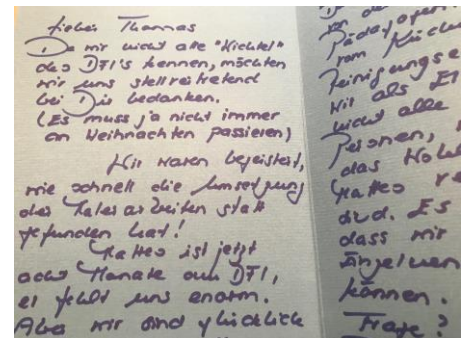 Lieber Thomas
Da wir nicht alle "Wichtel"
des DFI's kennen, möchten
wir uns stellvertretend
bei Dir bedanken.
(Es muss ja nicht immer
an Weihnachten passieren)
Wir waren begeistert,
wie schnell die Umsetzung
der Malerarbeiten statt
gefunden hat!
Matteo ist jetzt
acht Monate am DFI,
er fehlt uns enorm.
Aber wir sind glücklich
von
Pädagogen
vom Küchen
Reinigungse
Wir als El
nicht alle
Personen,
das Wohl
Matteo
sind. Es
dass wir
Einzelnen
können.
Frage?